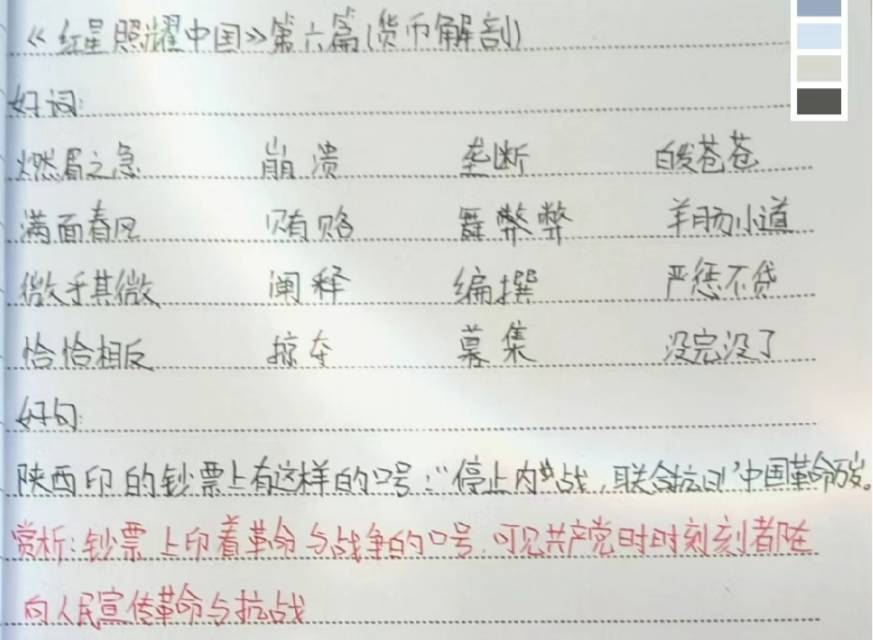 《红星照耀中国》第六篇(货币解剖)
好词:
燃眉之急 崩溃 垄断 白发苍苍
满面春风 贿赂 舞弊弊 羊肠小道
微乎其微 阐释 编撰 严惩不贷
恰恰相反 掠夺 募集 没完没了
好句:
陕西印的钞票上有这样的口号:“停止内战,联合抗日”中国革命
赏析:钞票上印着革命与战争的口号,可见共产党时时刻刻都在
向人民宣传革命与抗战